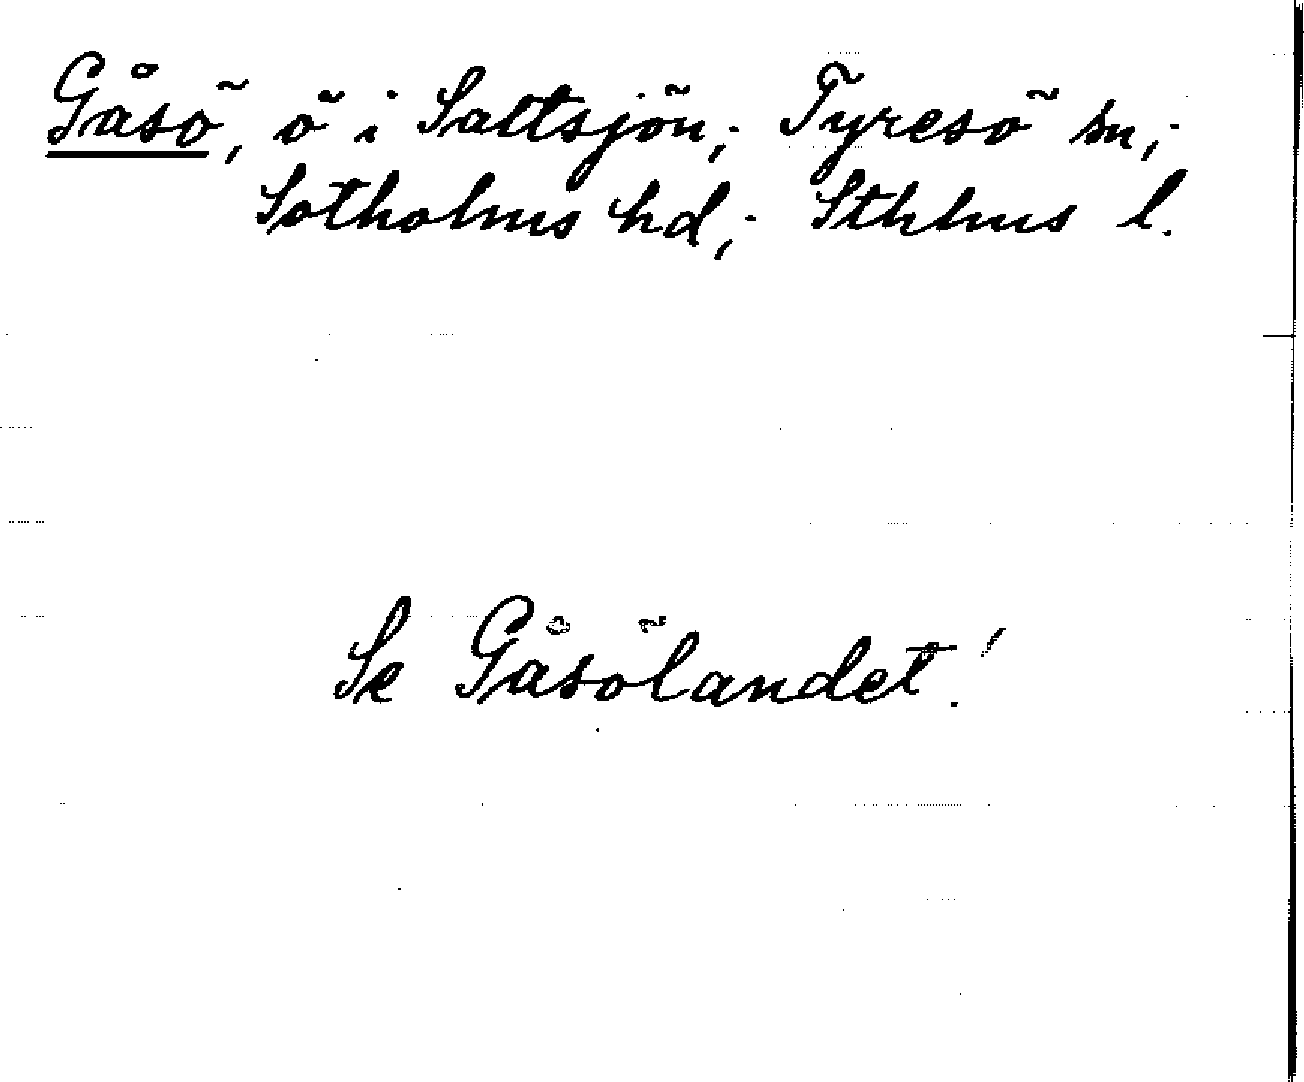 Gåsö, ö i Saltsjön; Tyresö sn;
Sotholms hd; Sthlms l.
Se Gåsölandet!